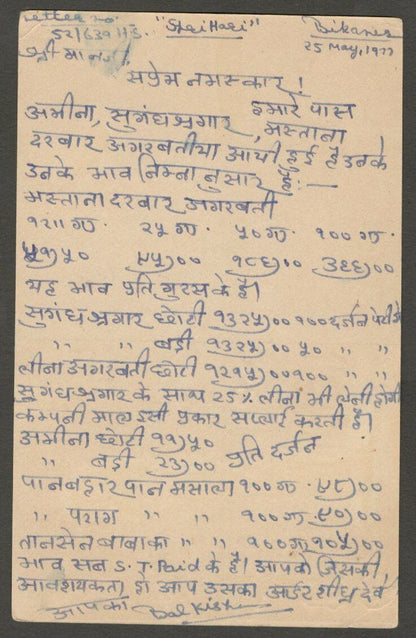 Letter no. "Shri Hari" Bikaner
52/639 H.S. 25 May, 1977
श्री मान जी
सप्रेम नमस्कार !
हमारे पास
अमीना, सुगंधश्रगार, मस्ताना
दरबार अगरबतीया आयी हुई है उनके
उनके भाव निम्ना नुसार है :—
मस्ताना दरबार अगरबती
१२॥ ग्रा. २५ ग्रा. ५० ग्रा. १०० ग्रा.
५१)५० ९५)०० १८६)०० ३६६)००
यह भाव प्रति गुरस के है।
सुगंधश्रगार छोटी १३२५)०० १०० दर्जन पेटी के
" " बड़ी १३२५)०० ५० " "
लीना अगरबती छोटी १२१५)०० १०० " "
सुगंधश्रगार के साथ 25% लीना भी लेनी होगी
कम्पनी माल इसी प्रकार सप्लाई करती है।
अमीना छोटी ११)५०
" बड़ी २३)०० प्रति दर्जन
पानबहार पान मसाला १०० ग्रा. ५८)००
" पराग " " १०० ग्रा. ९०)००
तानसेन बाबा का " " १०० ग्रा १०५)००
भाव सब S. T. Paid के है। आपको जिसकी
आवशयकता हो आप उसका आर्डर शीध्र देवें
आपका Bal Kishan